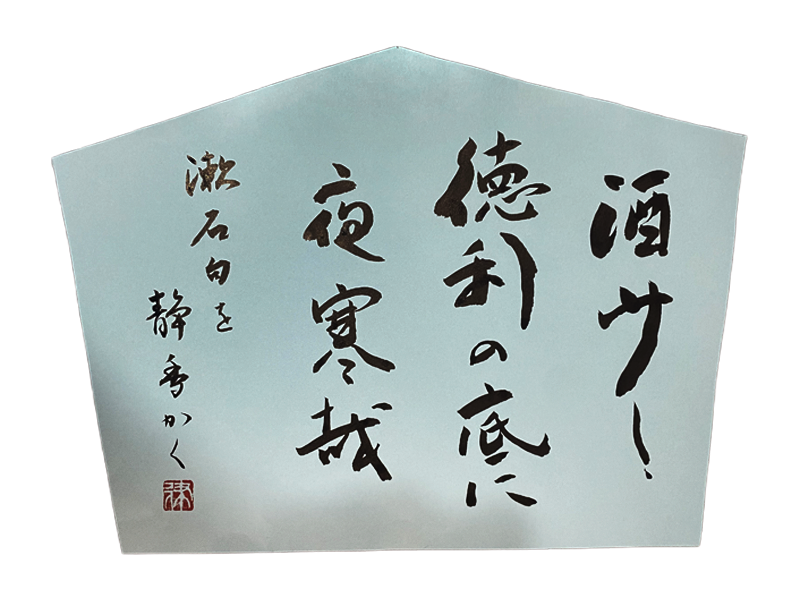 酒少し
徳利の底に
夜寒哉
漱石句を
静香かく